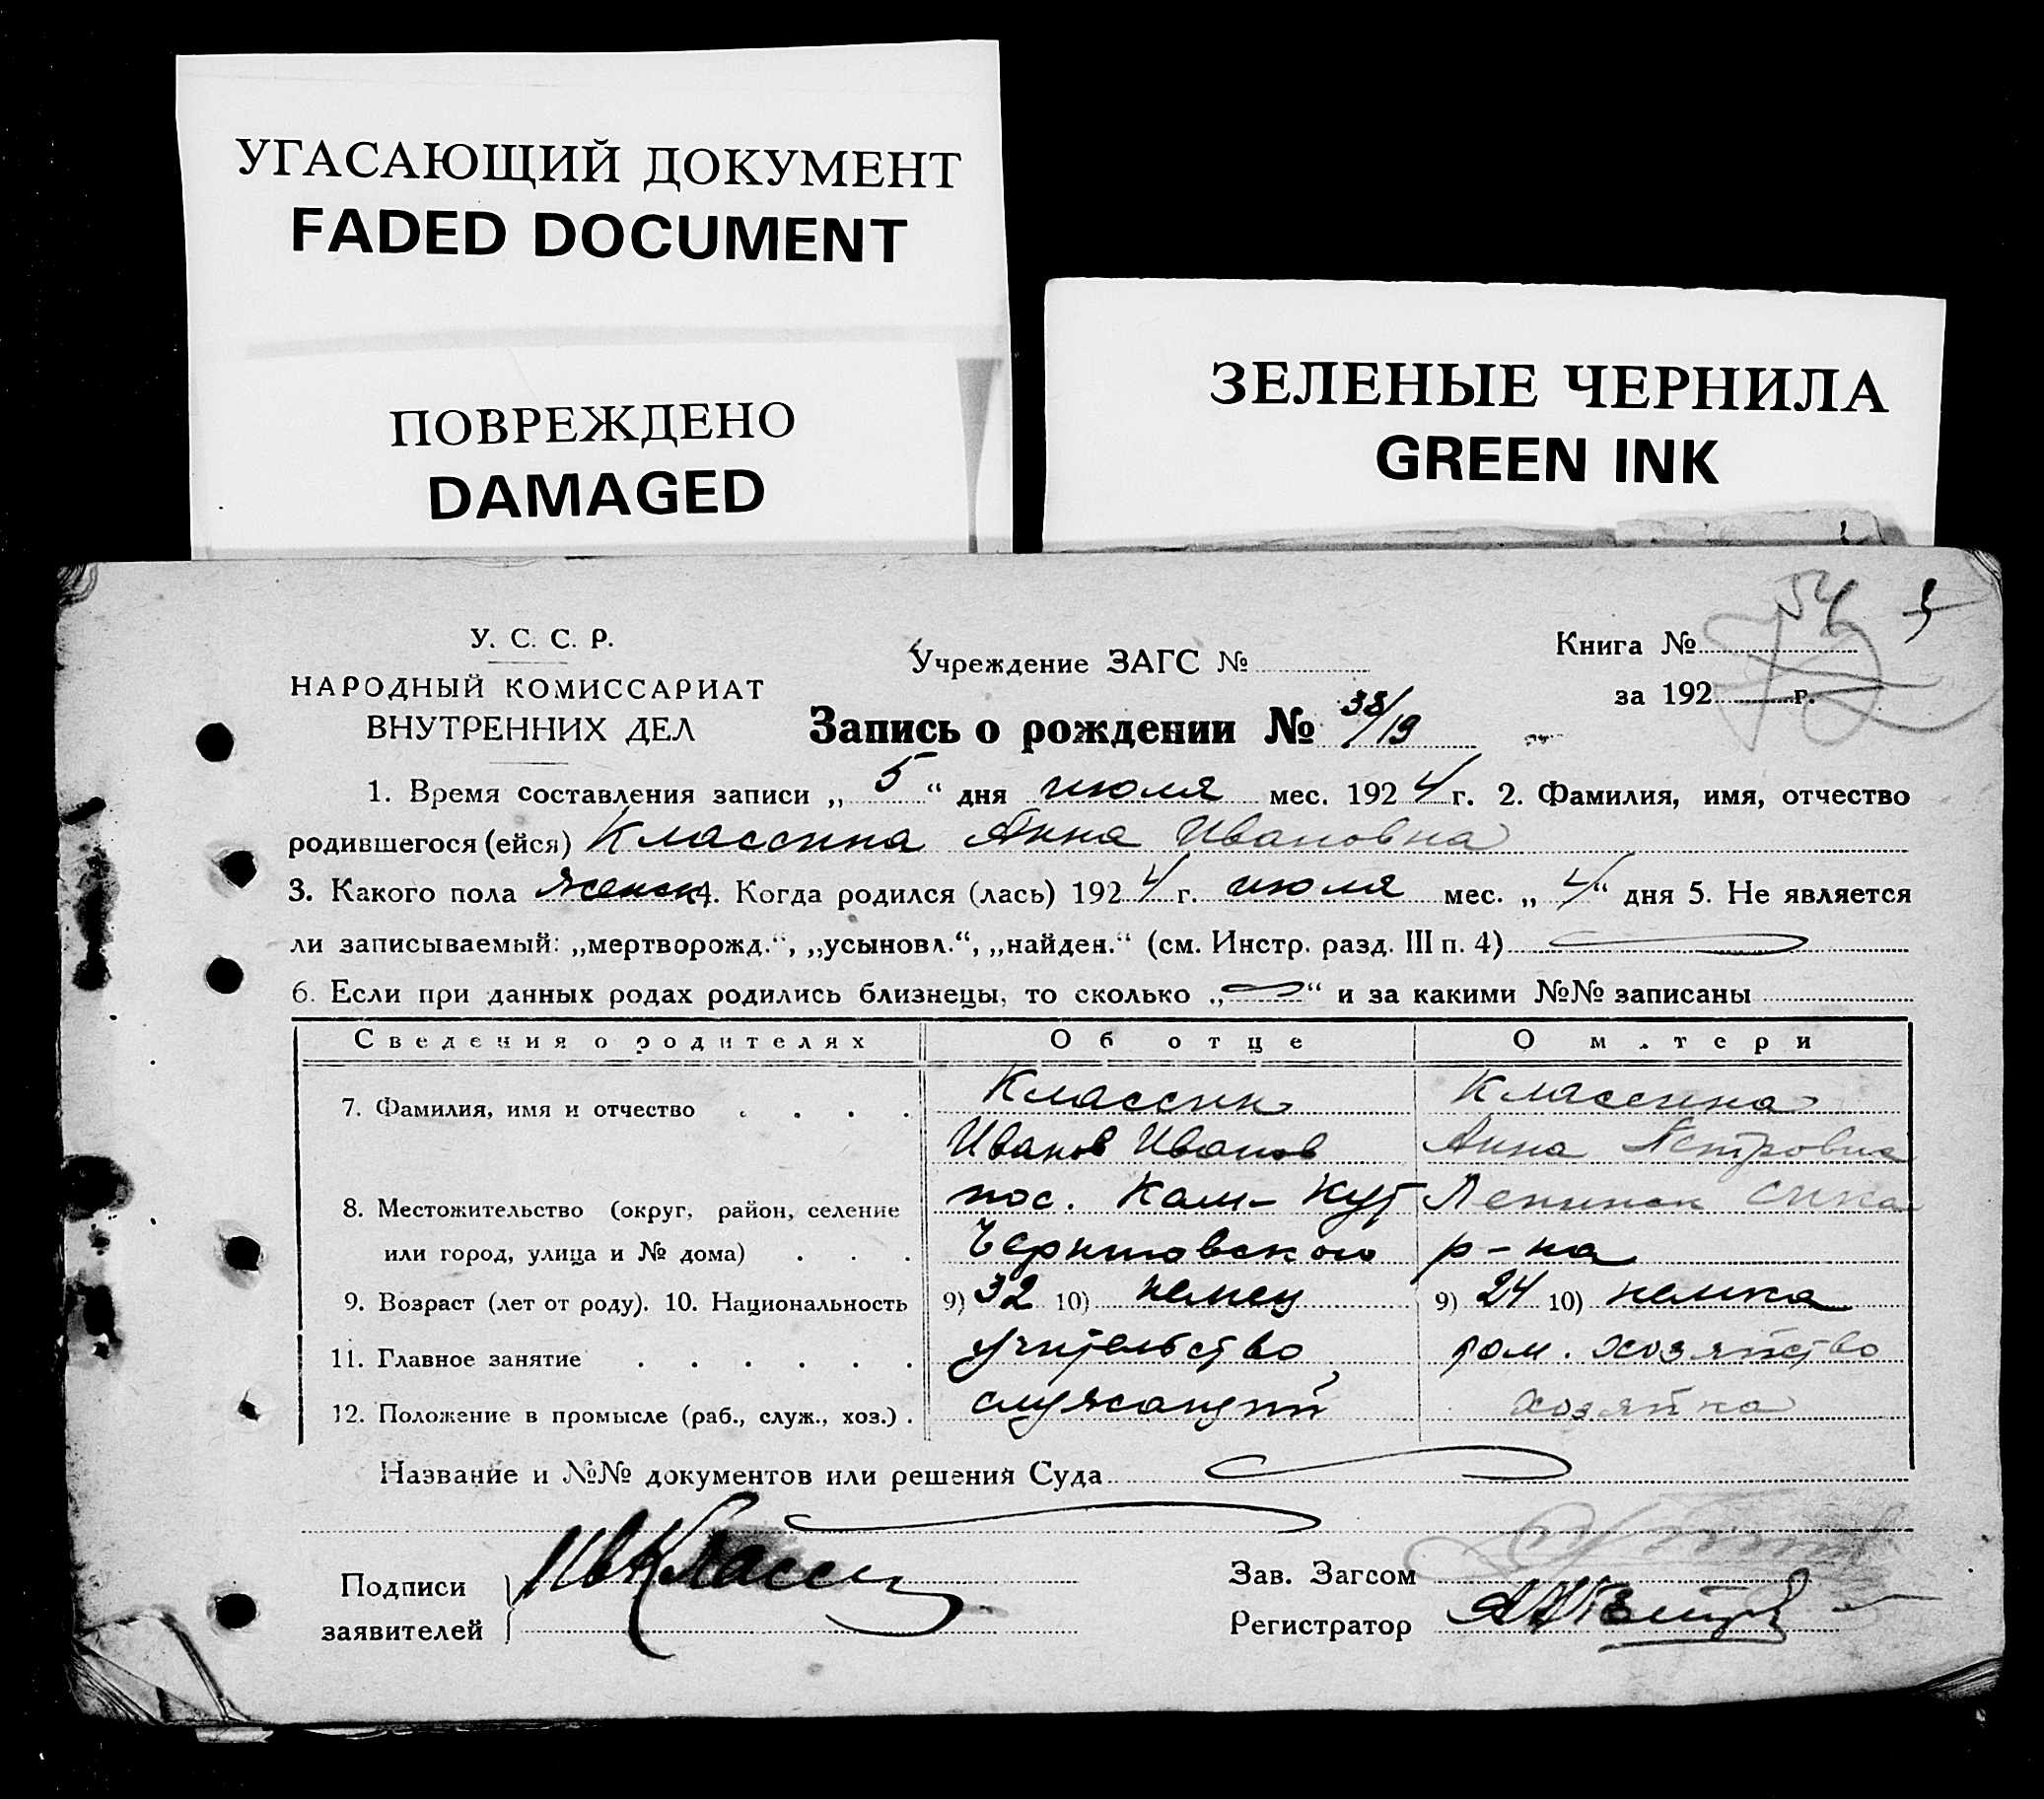 УГАСАЮЩИЙ ДОКУМЕНТ
FADED DOCUMENT
ПОВРЕЖДЕНО
DAMAGED
ЗЕЛЕНЫЕ ЧЕРНИЛА
GREEN INK
У. С. С. Р.
НАРОДНЫЙ КОМИССАРИАТ
ВНУТРЕННИХ ДЕЛ
Учреждение ЗАГС №
Книга №
за 192 г.
Запись о рождении № 38/19
1. Время составления записи „5“ дня июля мес. 1924 г. 2. Фамилия, имя, отчество
родившегося (ейся) Классина Анна Ивановна
3. Какого пола женск 4. Когда родился (лась) 1924 г. июля мес. „4“ дня 5. Не является
ли записываемый: „мертворожд.“, „усыновл.“, „найден.“ (см. Инстр. разд. III п. 4)
6. Если при данных родах родились близнецы, то сколько „ “ и за какими №№ записаны
Сведения о родителях Об отце О матери
7. Фамилия, имя и отчество Классин Классина
Иванов Иванов Анна Петровна
8. Местожительство (округ, район, селение пос. Кам-Кут
или город, улица и № дома) р-на
9. Возраст (лет от роду). 10. Национальность 9) 32 10) немец 9) 24 10) немка
11. Главное занятие учительство дом. хозяйство
12. Положение в промысле (раб., служ., хоз.) служащий хозяйка
Название и №№ документов или решений Суда
Подписи
заявителей
Ив Класси
Зав. Загсом
Регистратор